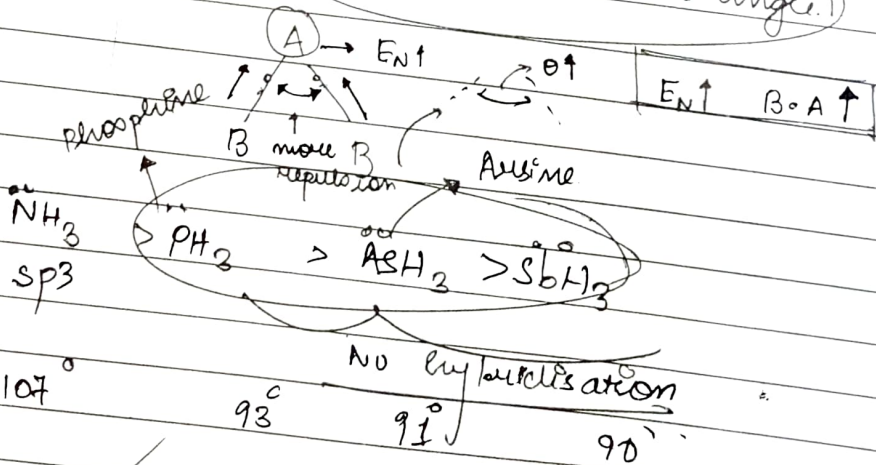 angle.)
A → EN↑
θ↑
EN↑ B·A ↑
phosphine
B more B
repulsion
Arsine
NH3 > PH3 > AsH3 > SbH3
sp3
No hybridisation
107° 93° 91° 90°